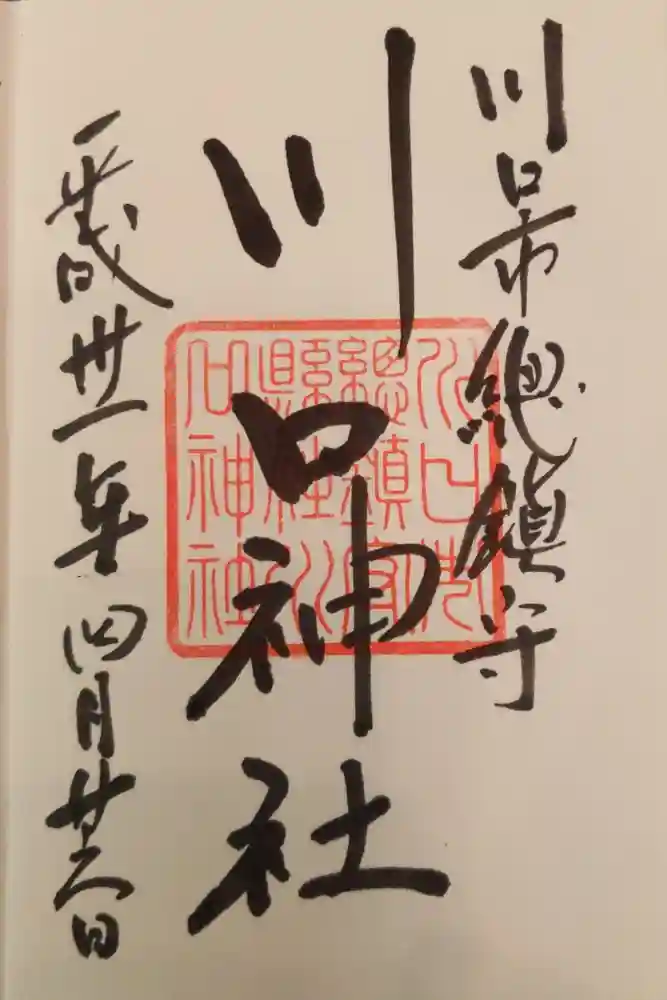 川口市總鎮守
川口神社
平成卅一年四月廿六日
川口市
總鎮守
縣社川
口神社